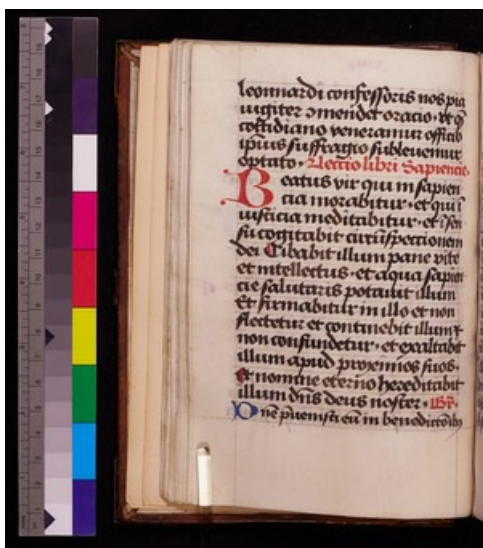 leonnardi confessoris nos pia
iugiter ꝯmendet oracio · et q̄
cottidiano veneramur officio
ip̄ius suffragio subleuemur
optato · Lectio libri Sapiencie.
Beatus vir qui in sapien
cia morabitur · et qui ī
iusticia meditabitur · et ī sen
su cogitabit circūspectionem
dei Cibabit illum pane vite
et intellectus · et aqua sapien
cie salutaris potauit illum
Et firmabitur in illo et non
flectetur et continebit illum ⁊
non confundetur · et exaltabit
illum apud proximos suos ·
Et nomine eterno hereditabit
illum dn̄s deus noster · Gr̄.
Dn̄e p̄uenisti eū in benedictōībꝫ